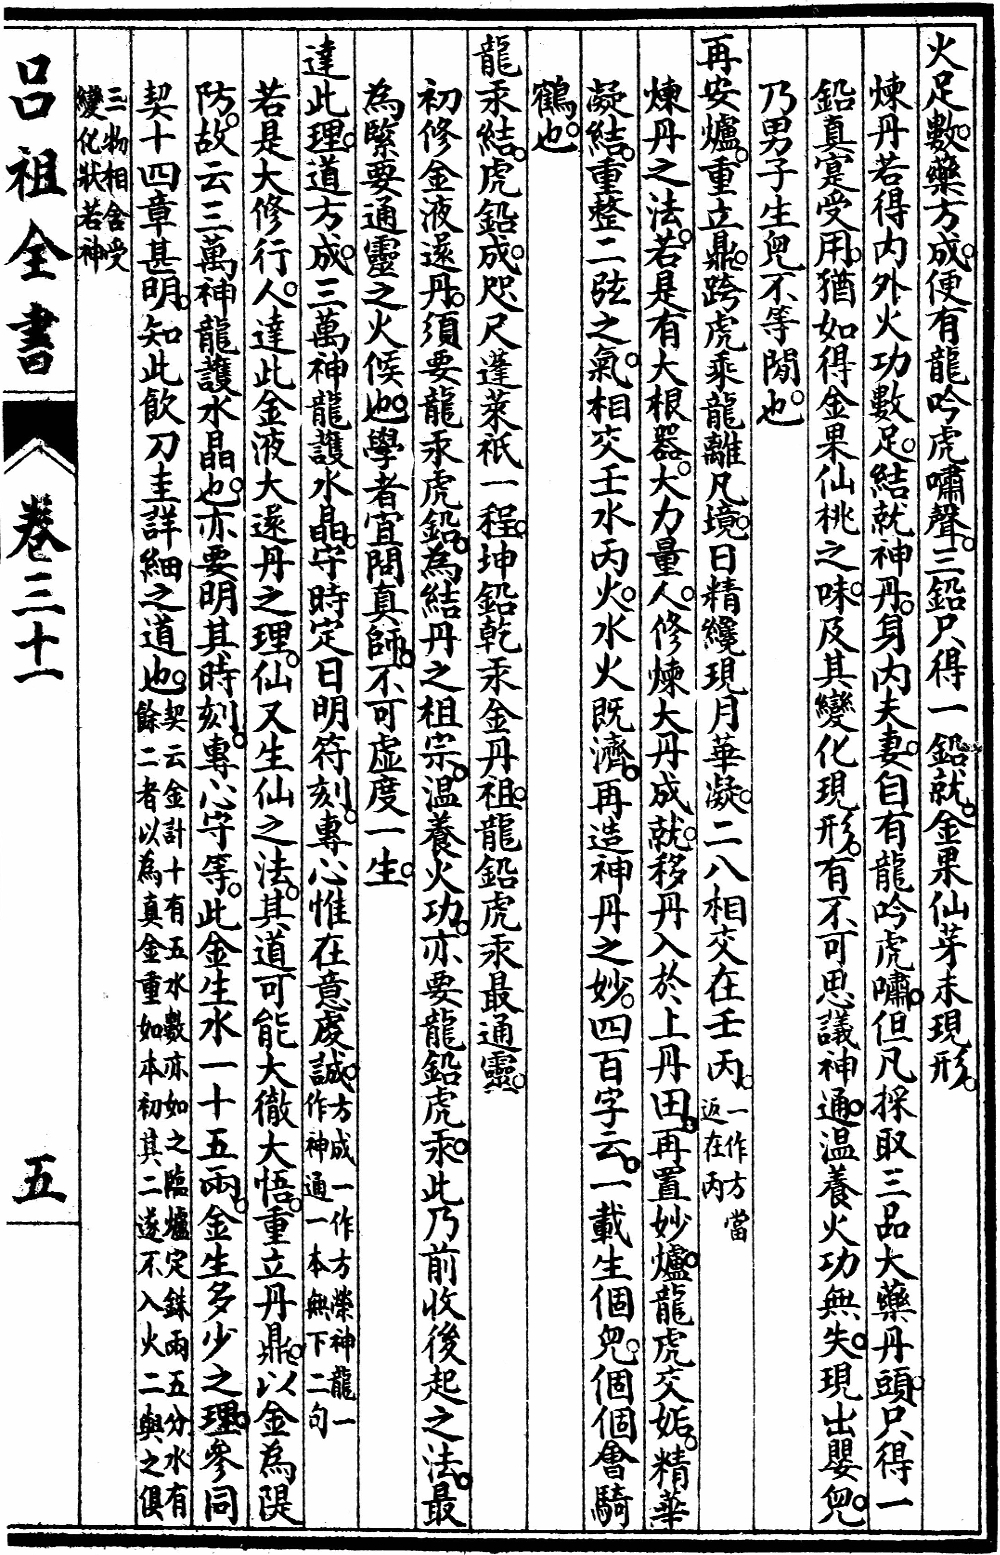 火足數。藥方成。便有龍吟虎嘯聲。三鉛只得一鉛就。金果仙芽未現形。
煉丹若得內外火功數足。結就神丹。身內夫妻。自有龍吟虎嘯。但凡採取三品大藥丹頭。只得一
鉛真寔受用。猶如得金果仙桃之味。及其變化現形。有不可思議神通。溫養火功無失。現出嬰兒。
乃男子生兒不等閒也。
再安爐。重立鼎。跨虎乘龍離凡境。日精纔現月華凝。二八相交在壬丙。一作方當返在丙
煉丹之法。若是有大根器。大力量人。修煉大丹成就。移丹入於上丹田。再置妙爐。龍虎交姤。精華
凝結。重整二弦之氣。相交壬水丙火。水火既濟。再造神丹之妙。四百字云。一載生個兒。個個會騎
鶴也。
龍汞結。虎鉛成。咫尺蓬萊祇一程。坤鉛乾汞金丹祖。龍鉛虎汞最通靈。
初修金液還丹。須要龍汞虎鉛。為結丹之祖宗。溫養火功。亦要龍鉛虎汞。此乃前收後起之法。最
為緊要通靈之火候也。學者宜問真師。不可虛度一生。
達此理。道方成。三萬神龍護水晶。守時定日明符刻。專心惟在意虔誠。方成一作方榮神龍一作神通一本無下二句
若是大修行人。達此金液大還丹之理。仙又生仙之法。其道可能大徹大悟。重立丹鼎。以金為隄
防。故云三萬神龍護水晶也。亦要明其時刻。專心守等。此金生水一十五兩。金生多少之理。參同
契十四章甚明。知此飲刀圭詳細之道也。契云金計十有五水數亦如之臨爐定銖兩五分水有餘二者以為真金重如本初其二遂不入火二與之俱
三物相含受變化狀若神
呂祖全書
卷三十一
五